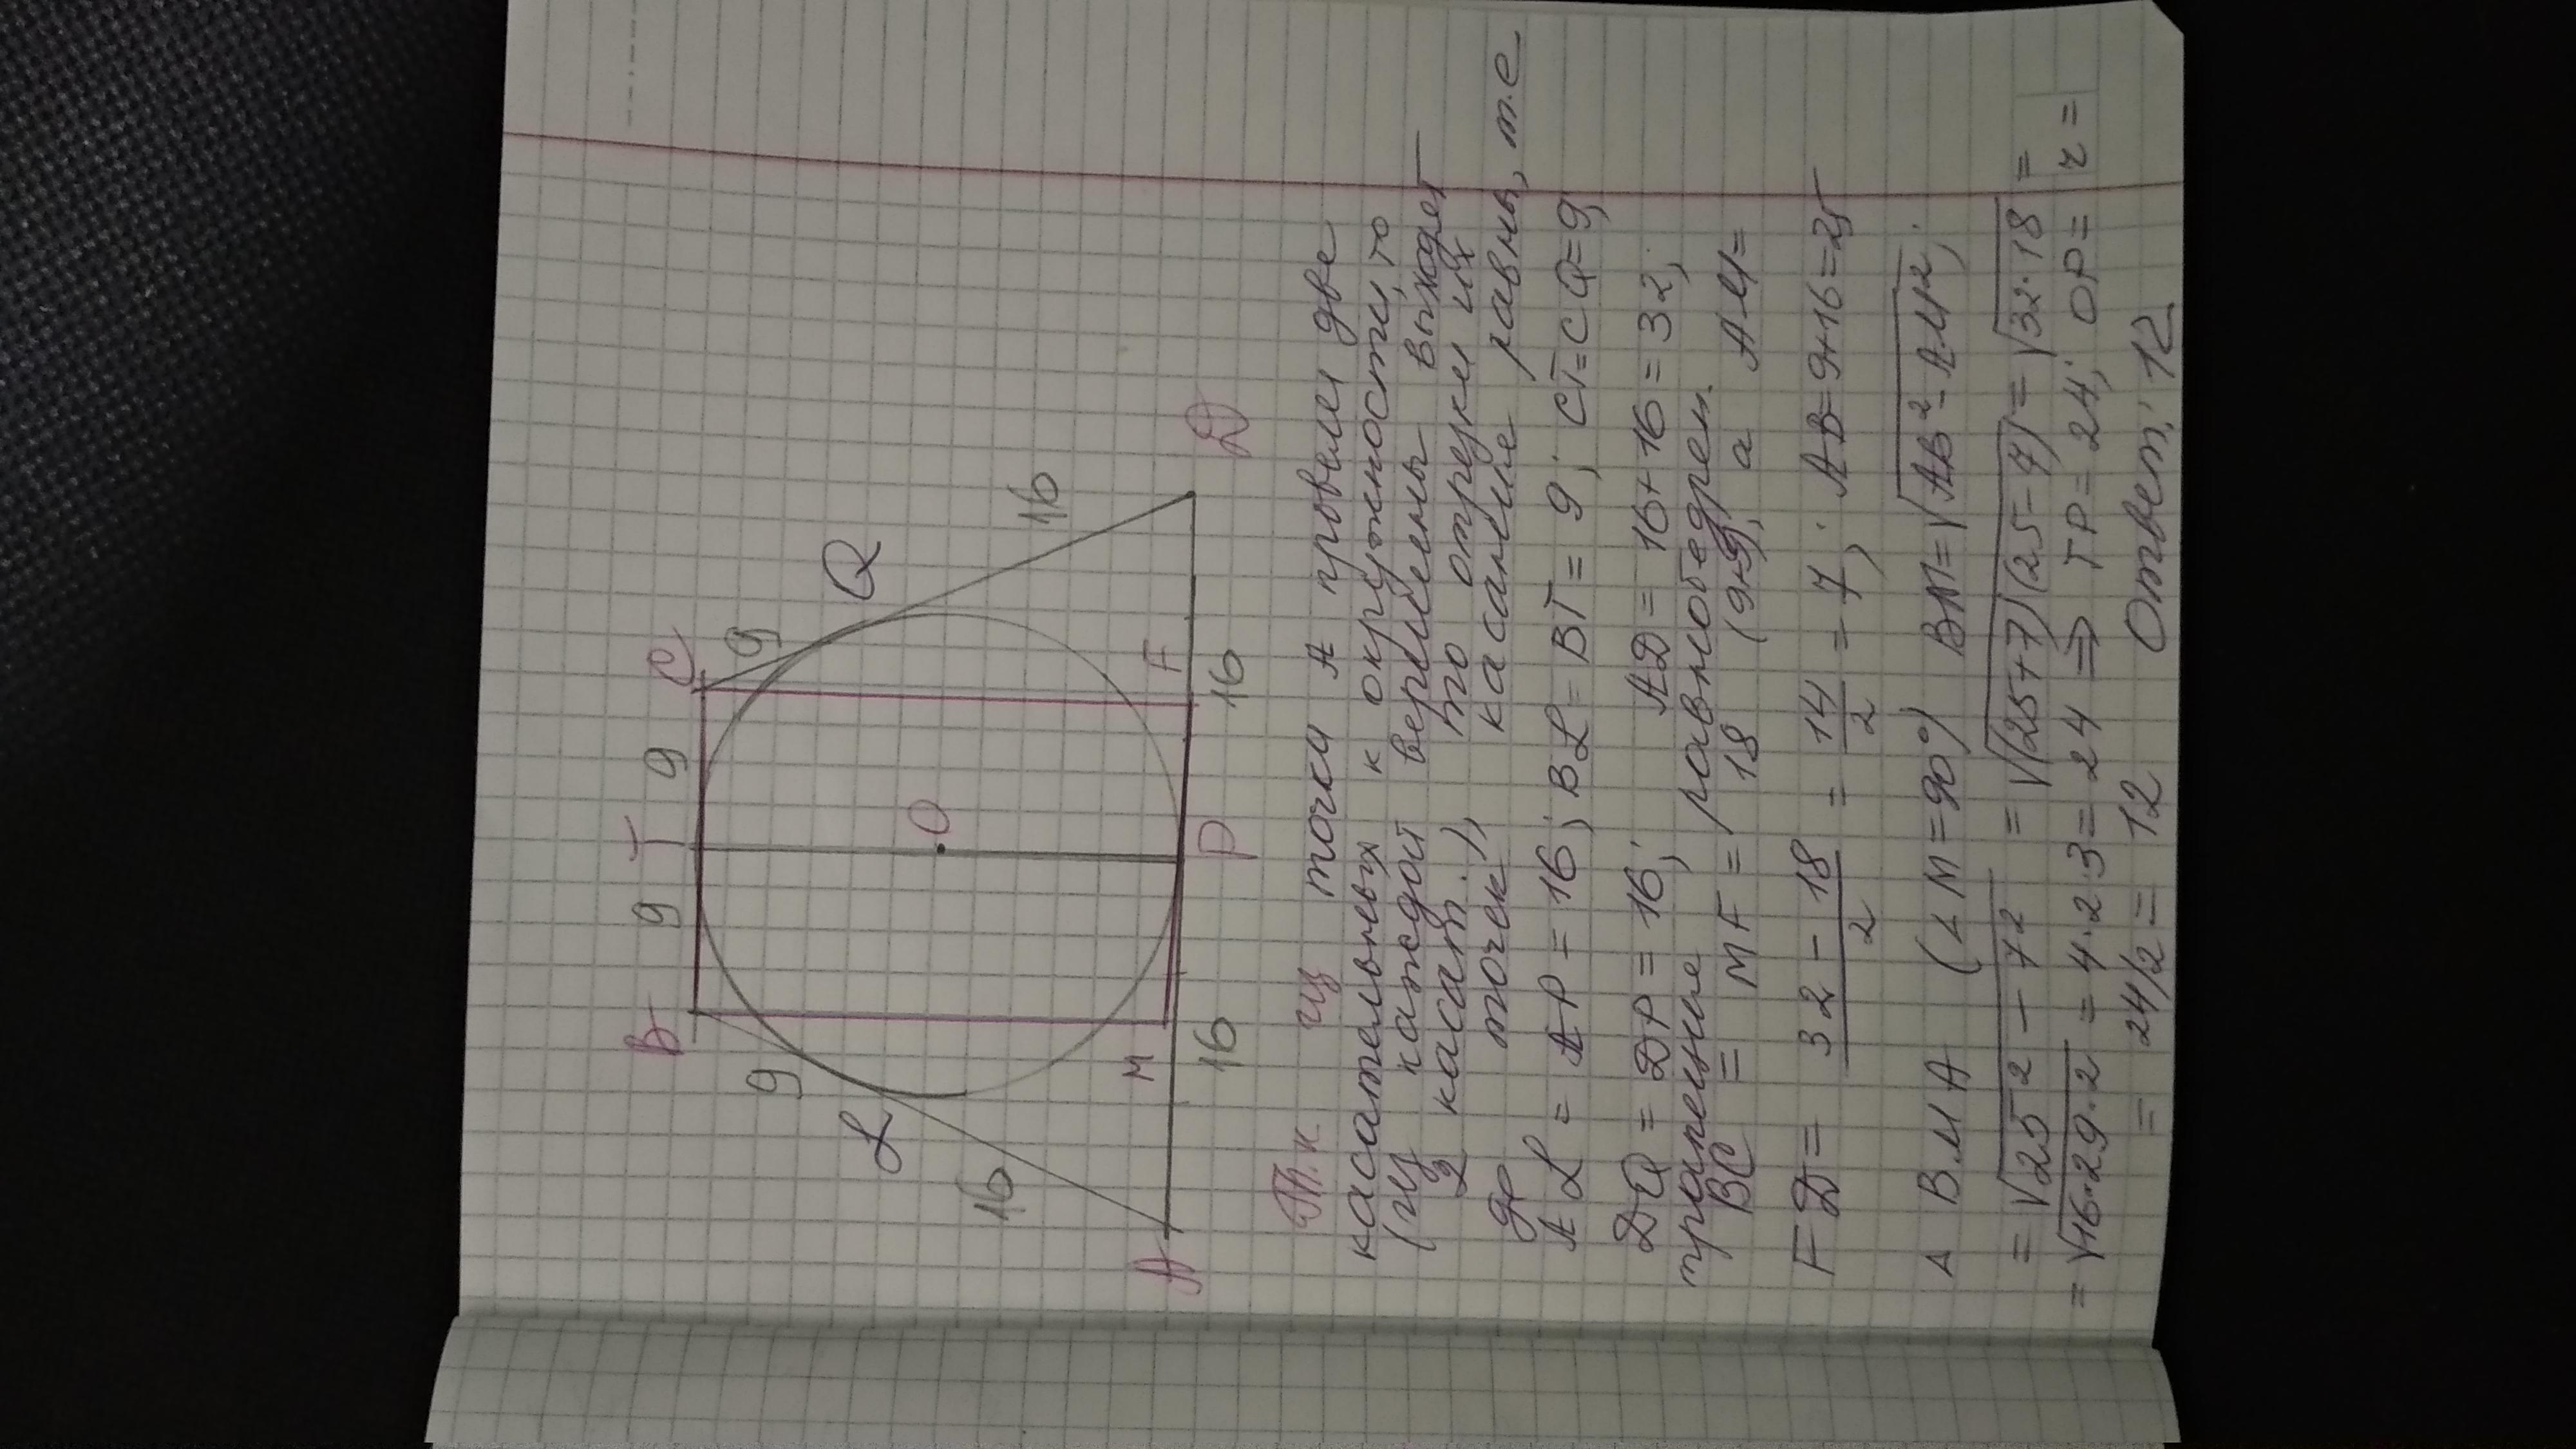 B 9 T 9 C
9 9
L Q
O
16 16
M F
A 16 P 16 D
Т.к из точка A провели две
касательных к окружности, то
(из каждой вершины выходят
2 касат.), то отрезки их
до точек касание равны, т.е
AL = AP = 16; BL = BT = 9; CT=CQ=9;
DQ = DP = 16; AD = 16+16=32;
трапеция равнобедрен.
BC = MF = 18 (9+9), а AM=
FD = (32-18)/2 = 14/2 = 7; AB=9+16=25
Δ BMA (∠M=90°) BM=√(AB²-AM²);
= √(25²-7²) = √((25+7)(25-7)) = √(32·18) =
= √(16·2·9·2) = 4·2·3= 24 ⇒ TP=24; OP= r =
= 24/2 = 12 Ответ: 12